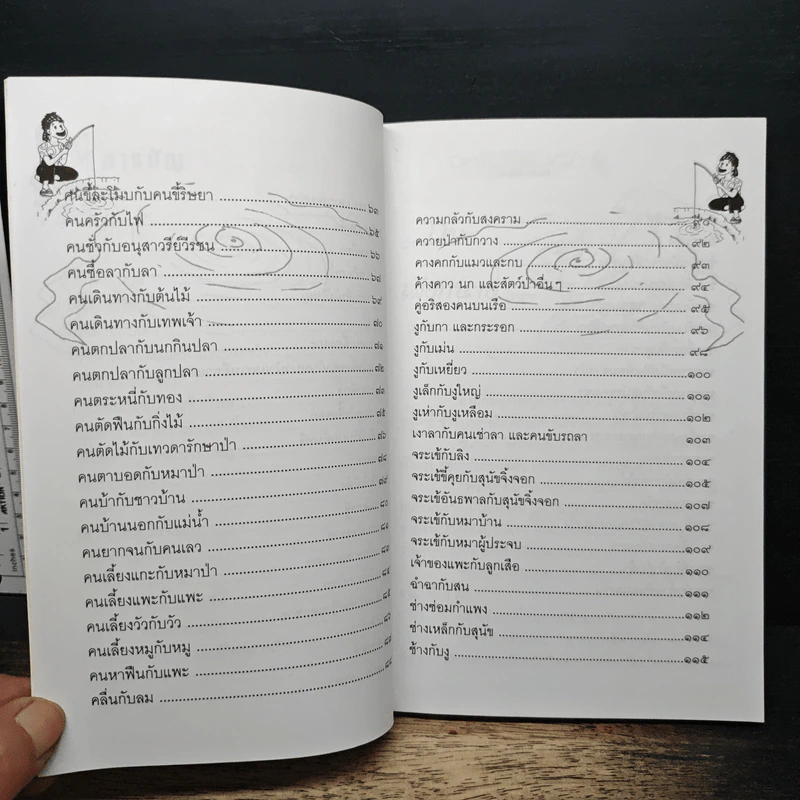 คนขี้ละโมบกับคนขี้ริษยา ๖๓
คนครัวกับไฟ ๖๕
คนชั่วกับอนุสาวรีย์วีรชน ๖๖
คนซื้อลากับลา ๖๘
คนเดินทางกับต้นไม้ ๖๙
คนเดินทางกับเทพเจ้า ๗๐
คนตกปลากับนกกินปลา ๗๑
คนตกปลากับลูกปลา ๗๒
คนตระหนี่กับทอง ๗๓
คนตัดฟืนกับกิ่งไม้ ๗๕
คนตัดไม้กับเทวดารักษาป่า ๗๖
คนตาบอดกับหมาป่า ๗๘
คนบ้ากับชาวบ้าน ๗๙
คนบ้านนอกกับแม่น้ำ ๘๐
คนยากจนกับคนเลว
คนเลี้ยงแกะกับหมาป่า
คนเลี้ยงแพะกับแพะ ๘๔
คนเลี้ยงวัวกับวัว ๘๕
คนเลี้ยงหมูกับหมู ๘๖
คนหาฟืนกับแพะ
คลื่นกับลม
ความกลัวกับสงคราม ๙๐
ควายป่ากับกวาง ๙๒
คางคกกับแมวและกบ ๙๓
ค้างคาว นก และสัตว์ป่าอื่นๆ ๙๔
คู่อริสองคนบนเรือ ๙๕
งูกับกา และกระรอก ๙๖
งูกับเม่น ๙๘
งูกับเหยี่ยว ๑๐๐
งูเล็กกับงูใหญ่ ๑๐๑
งูเห่ากับงูเหลือม ๑๐๒
เงาลากับคนเช่าลา และคนขับรถลา ๑๐๓
จระเข้กับลิง ๑๐๔
จระเข้ขี้คุยกับสุนัขจิ้งจอก ๑๐๕
จระเข้อันธพาลกับสุนัขจิ้งจอก ๑๐๗
จระเข้กับหมาบ้าน ๑๐๘
จระเข้กับหมาผู้ประจบ ๑๐๙
เจ้าของแพะกับลูกเสือ ๑๑๐
ฉำฉากับสน ๑๑๑
ช่างซ่อมกำแพง ๑๑๒
ช่างเหล็กกับสุนัข ๑๑๔
ช้างกับงู ๑๑๕
inches